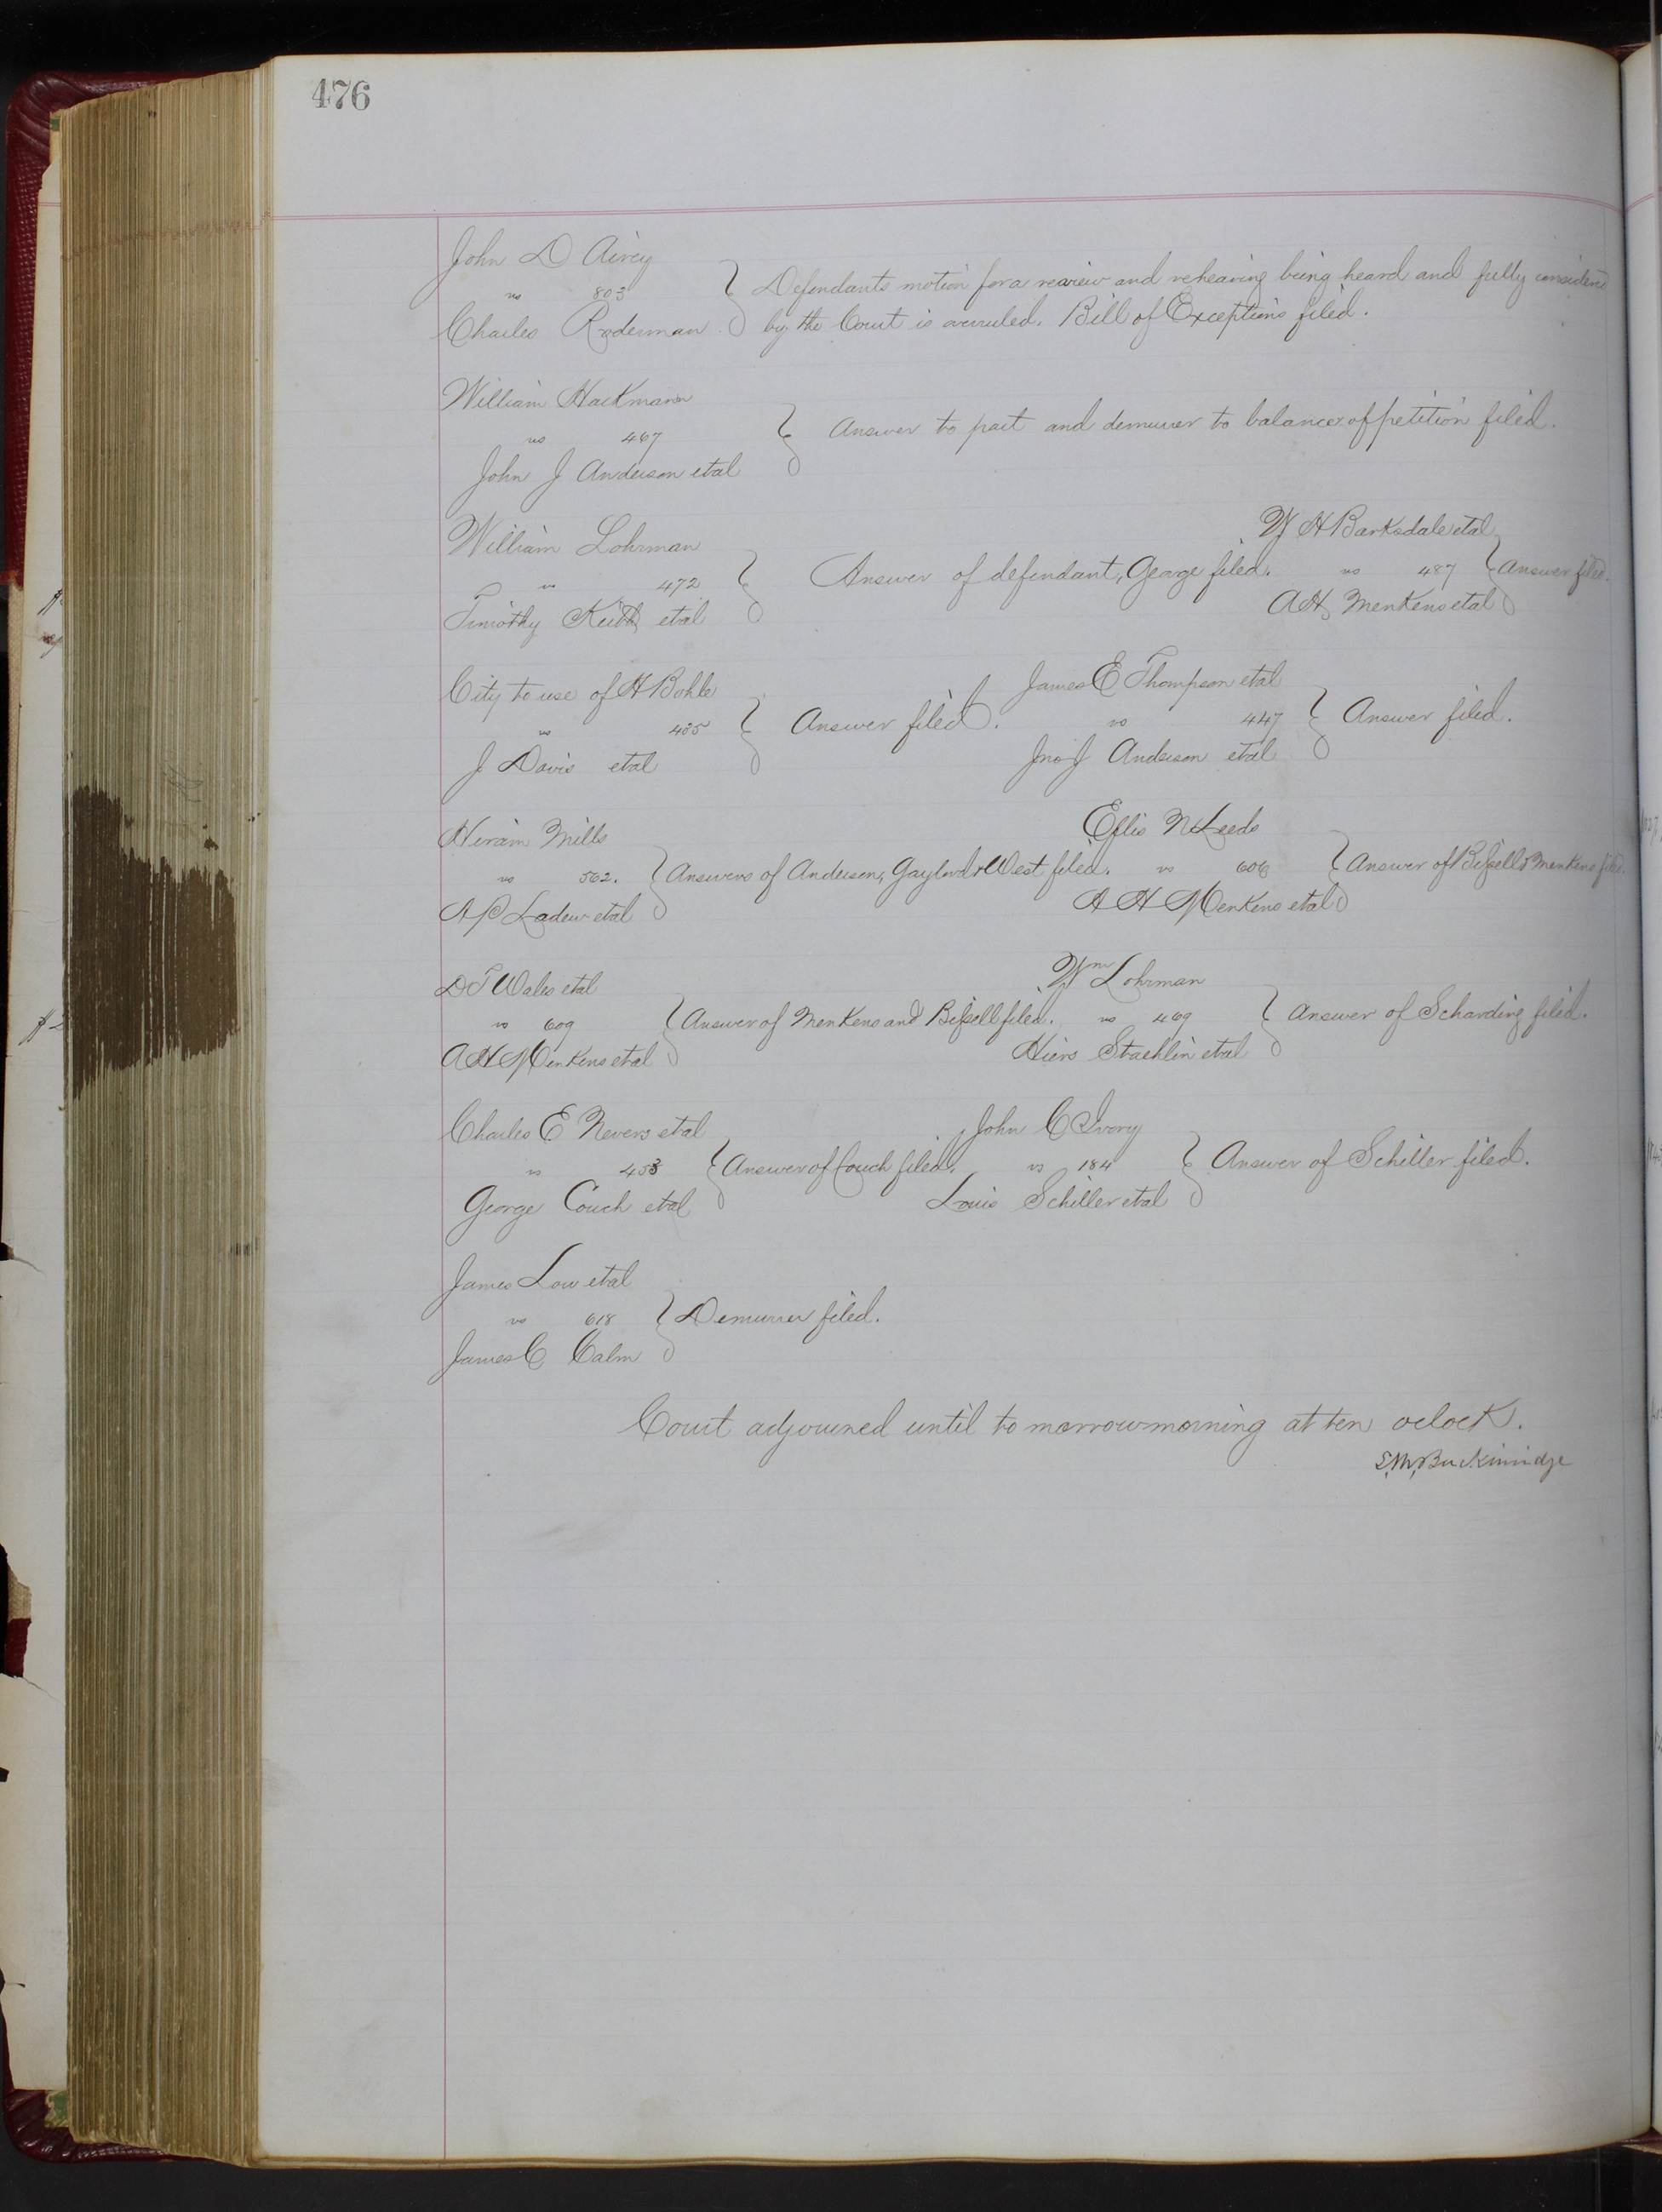 476
John D Airey
vs 803
Charles Roderman
Defendants motion for a review and rehearing being heard and fully considered
by the Court is overruled. Bill of Exceptions filed.
William Hackmann
vs 467
John J Anderson etal
Answer to part and demurrer to balance of petition filed.
William Lohrman
vs 472
Timothy Keith etal
Answer of defendant, George filed.
W H Barksdale etal
vs 487
A H Menkens etal
Answer filed.
City to use of H Bohle
vs 485
J Davis etal
Answer filed.
James E Thompson etal
vs 447
Jno J Anderson etal
Answer filed.
Hiram Mills
vs 562.
A P Ladew etal
Answers of Anderson, Gaylord & West filed.
vs 606
A H Menkens etal
Answer of Bissell & Menkens filed.
D T Wales etal
vs 609
A H Menkens etal
Answer of Menkens and Bissell filed.
Wm Lohrman
vs 469
Staehlin etal
Answer of Scharding filed.
Charles E Nevers etal
vs 453
George Couch etal
Answer of Couch filed.
John C Ivory
vs 184
Louis Schiller etal
Answer of Schiller filed.
James Low etal
vs 618
James C Calm
Demurrer filed.
Court adjourned until to morrow morning at ten oclock.